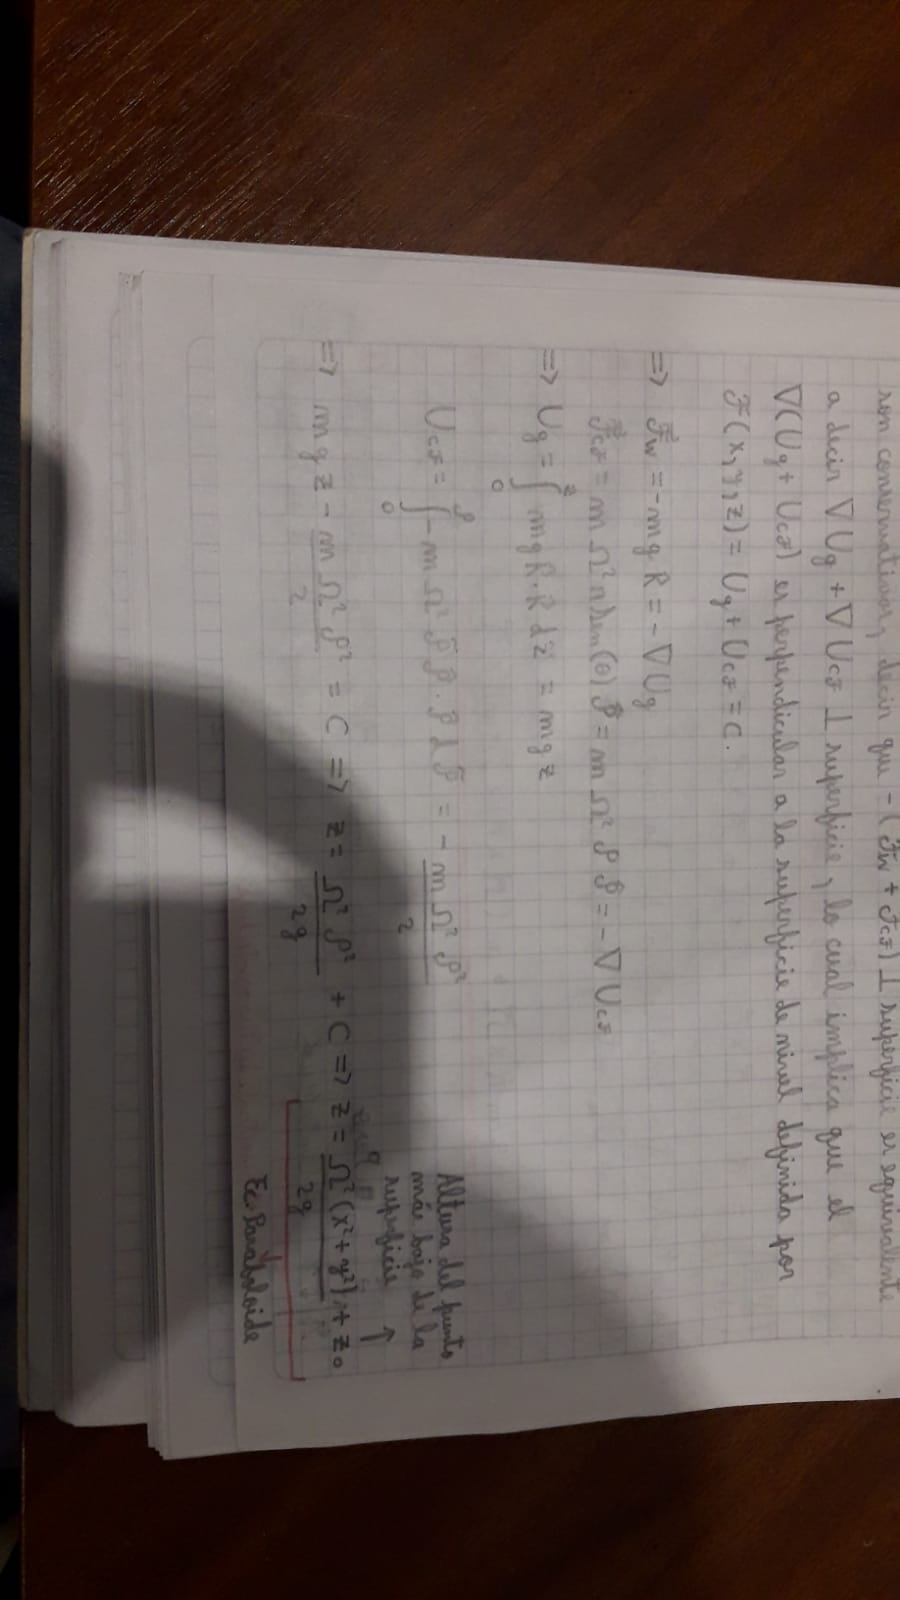 son conservativos, decir que -(F_w + F_cf) ⊥ superficie es equivalente
a decir ∇U_g + ∇U_cf ⊥ superficie, lo cual implica que el
∇(U_g + U_cf) es perpendicular a la superficie de nivel definida por
F(x,y,z) = U_g + U_cf = C.
=> F_w = -mg k̂ = -∇U_g
F_cf = m Ω² r sen(θ) ρ̂ = m Ω² ρ ρ̂ = -∇U_cf
=> U_g = ∫₀^z mg k̂·k̂ dz̃ = mgz
U_cf = ∫₀^ρ -m Ω² ρ̃ ρ̂·ρ̂ dρ̃ = - m Ω² ρ² / 2
=> mgz - m Ω² ρ² / 2 = C => z = Ω² ρ² / 2g + C => z = Ω² (x² + y²) / 2g + z₀
Altura del punto
más bajo de la
superficie ↑
Ec. Paraboloide